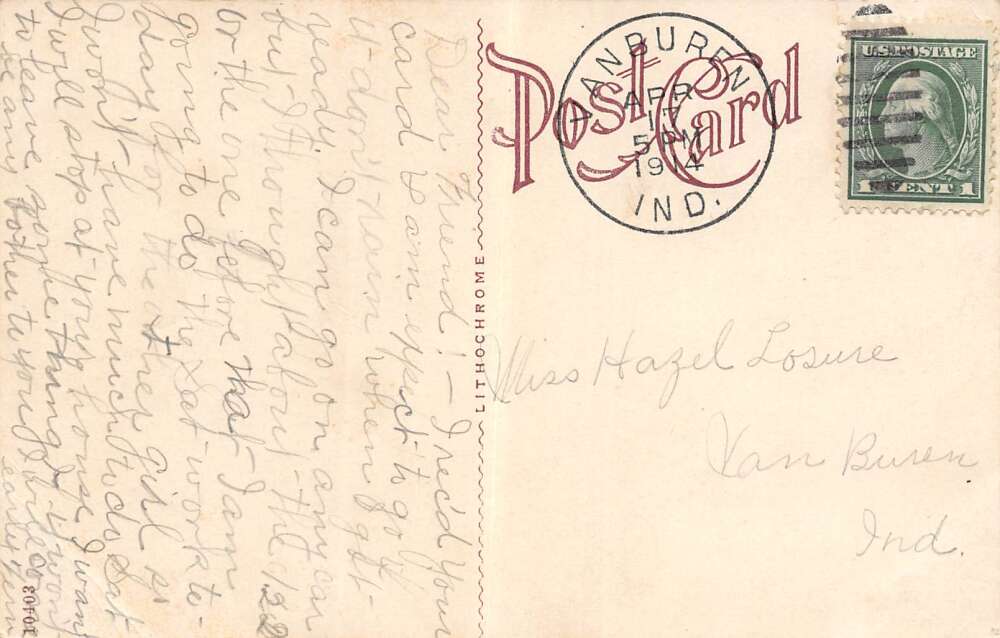 Post Card
VAN BUREN
APR
17
5 PM
1914
IND.
U.S. POSTAGE
1 CENT 1
Dear Friend! – I rec'd your
card & am expect to go if
it don't rain when I get
ready. I can go on any car
but I thought about the 12
or the one before that I am
going to do the Sat work to-
day for the other girl so
I won't have much to do Sat
I will stop at your house I want
to leave some things if won't
be any bother to you I will come
early
LITHOCHROME
10403
Miss Hazel Losure
Van Buren
Ind.